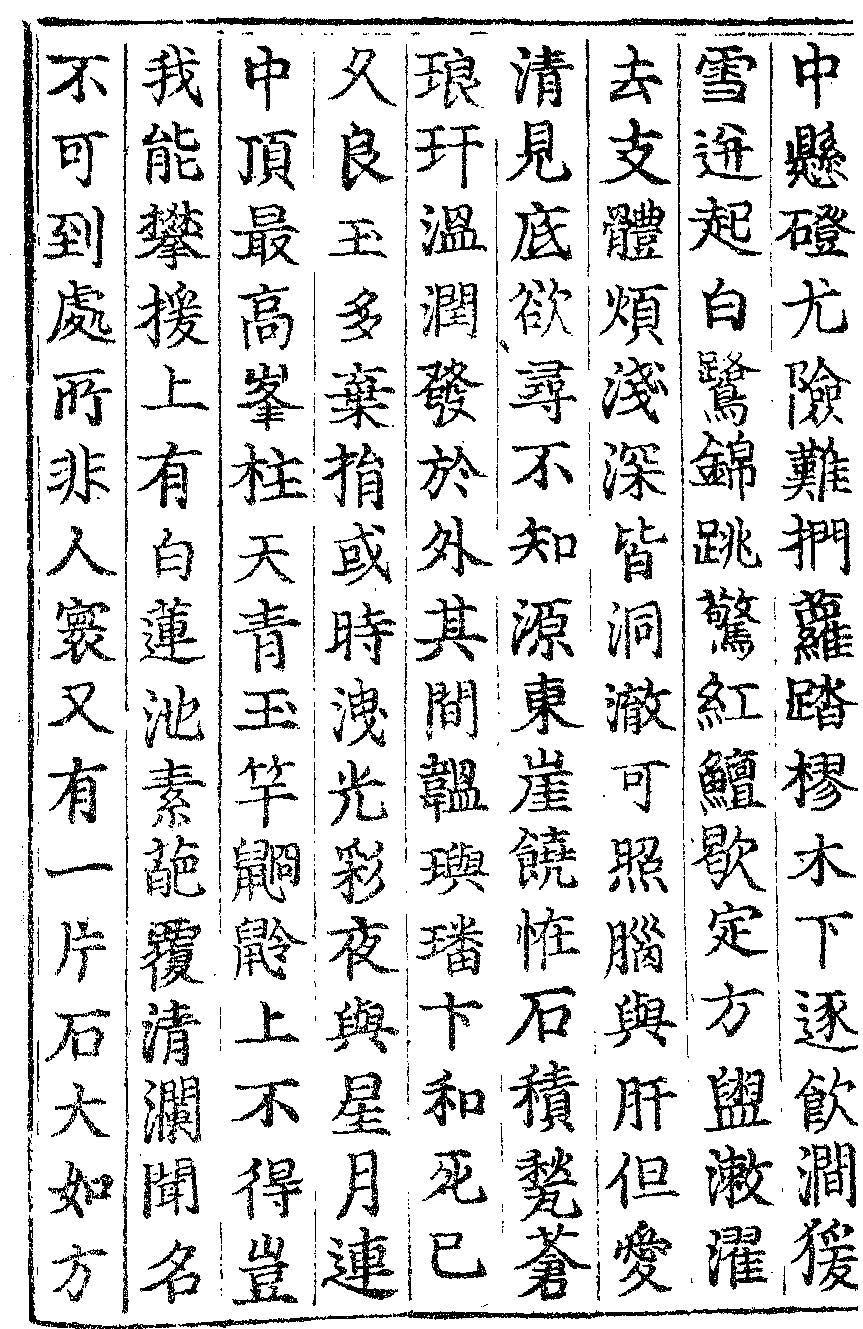 中懸磴尤險難捫蘿踏樛木下逐飲澗猨
雪迸起白鷺錦跳驚紅鱣歇定方盥漱濯
去支體煩淺深皆洞澈可照腦與肝但愛
清見底欲尋不知源東崖饒恠石積甃蒼
琅玕溫潤發於外其間韞璵璠卞和死已
久良玉多棄捐或時洩光彩夜與星月連
中頂最高峯柱天青玉竿䶄䶅上不得豈
我能攀援上有白蓮池素葩覆清瀾聞名
不可到處所非人寰又有一片石大如方